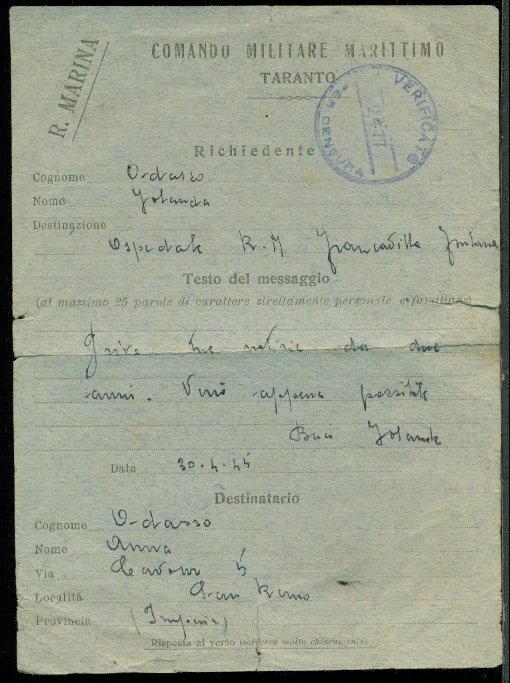 R. MARINA
COMANDO MILITARE MARITTIMO
TARANTO
VERIFICATO PER CENSURA
Richiedente
Cognome Odasso
Nome Yolanda
Destinazione
Ospedale R. M. Francavilla Fontana
Testo del messaggio
(al massimo 25 parole di carattere strettamente personale e familiare)
tue notizie da due
anni. Verrò appena possibile
Baci Yolanda
Data 30.4.45
Destinatario
Cognome Odasso
Nome Anna
Via Cavour 5
Località San Remo
Provincia (Imperia)
Risposta al verso (scrivere molto chiaramente)